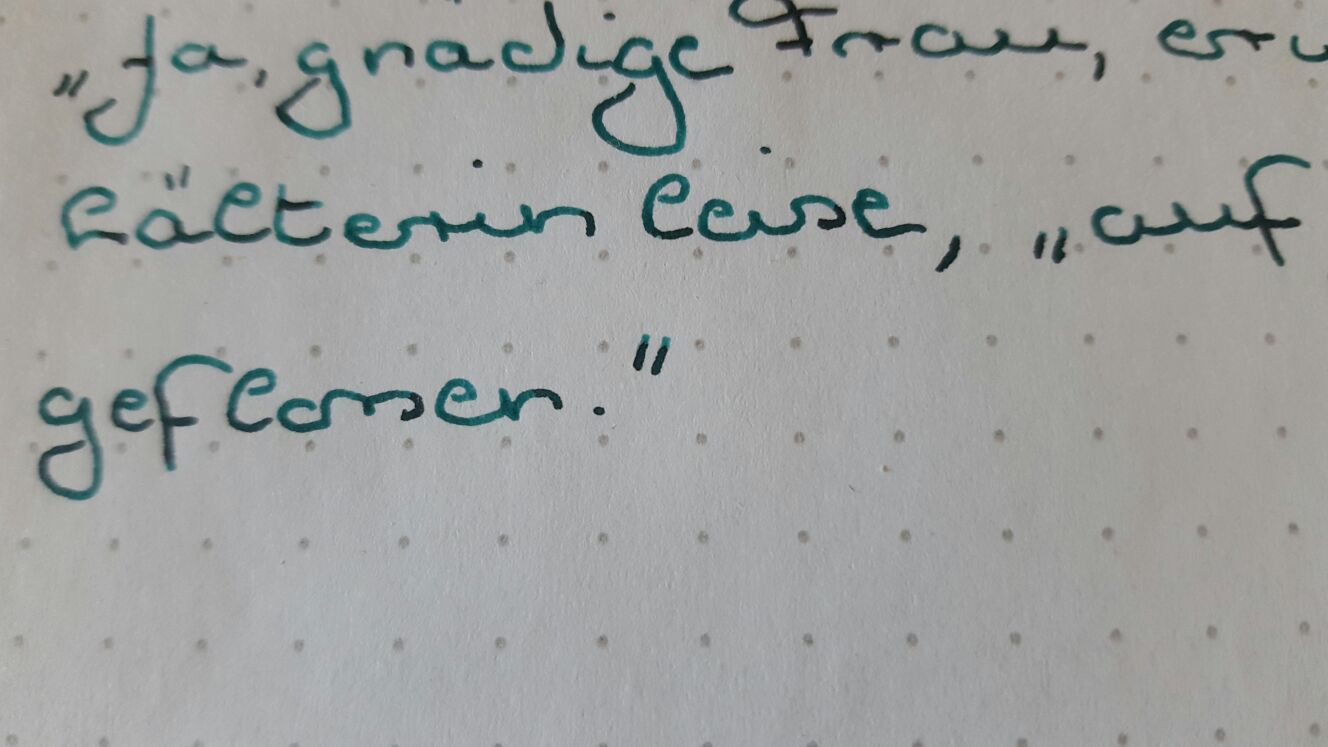 „Ja, gnädige Frau, erw
hälterin leise, „auf
geflossen."